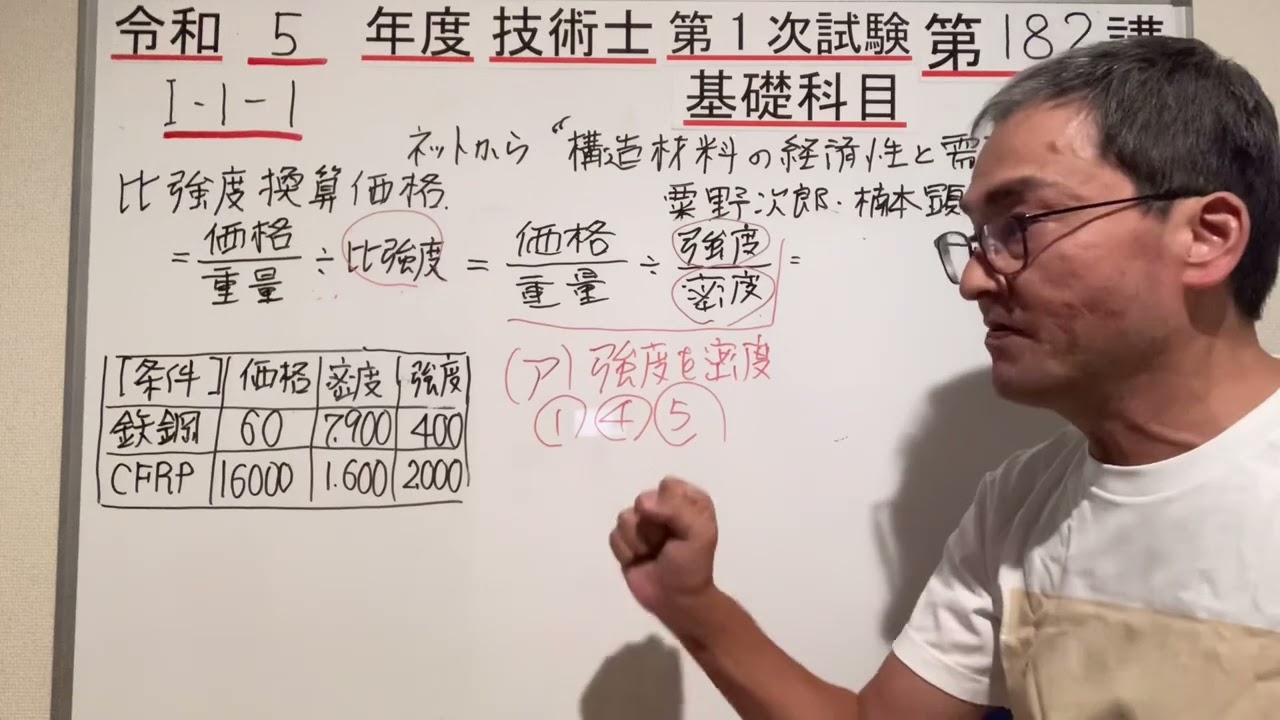 令和 5 年度 技術士 第1次試験 第182講
I-1-1 基礎科目
ネットから "構造材料の経済性と需
粟野次郎・楠本顕
比強度換算価格
= 価格/重量 ÷ 比強度 = 価格/重量 ÷ 強度/密度 =
(ア) 強度を密度
① ④ ⑤
[条件] 価格 密度 強度
鉄鋼 60 7.900 400
CFRP 16000 1.600 2000